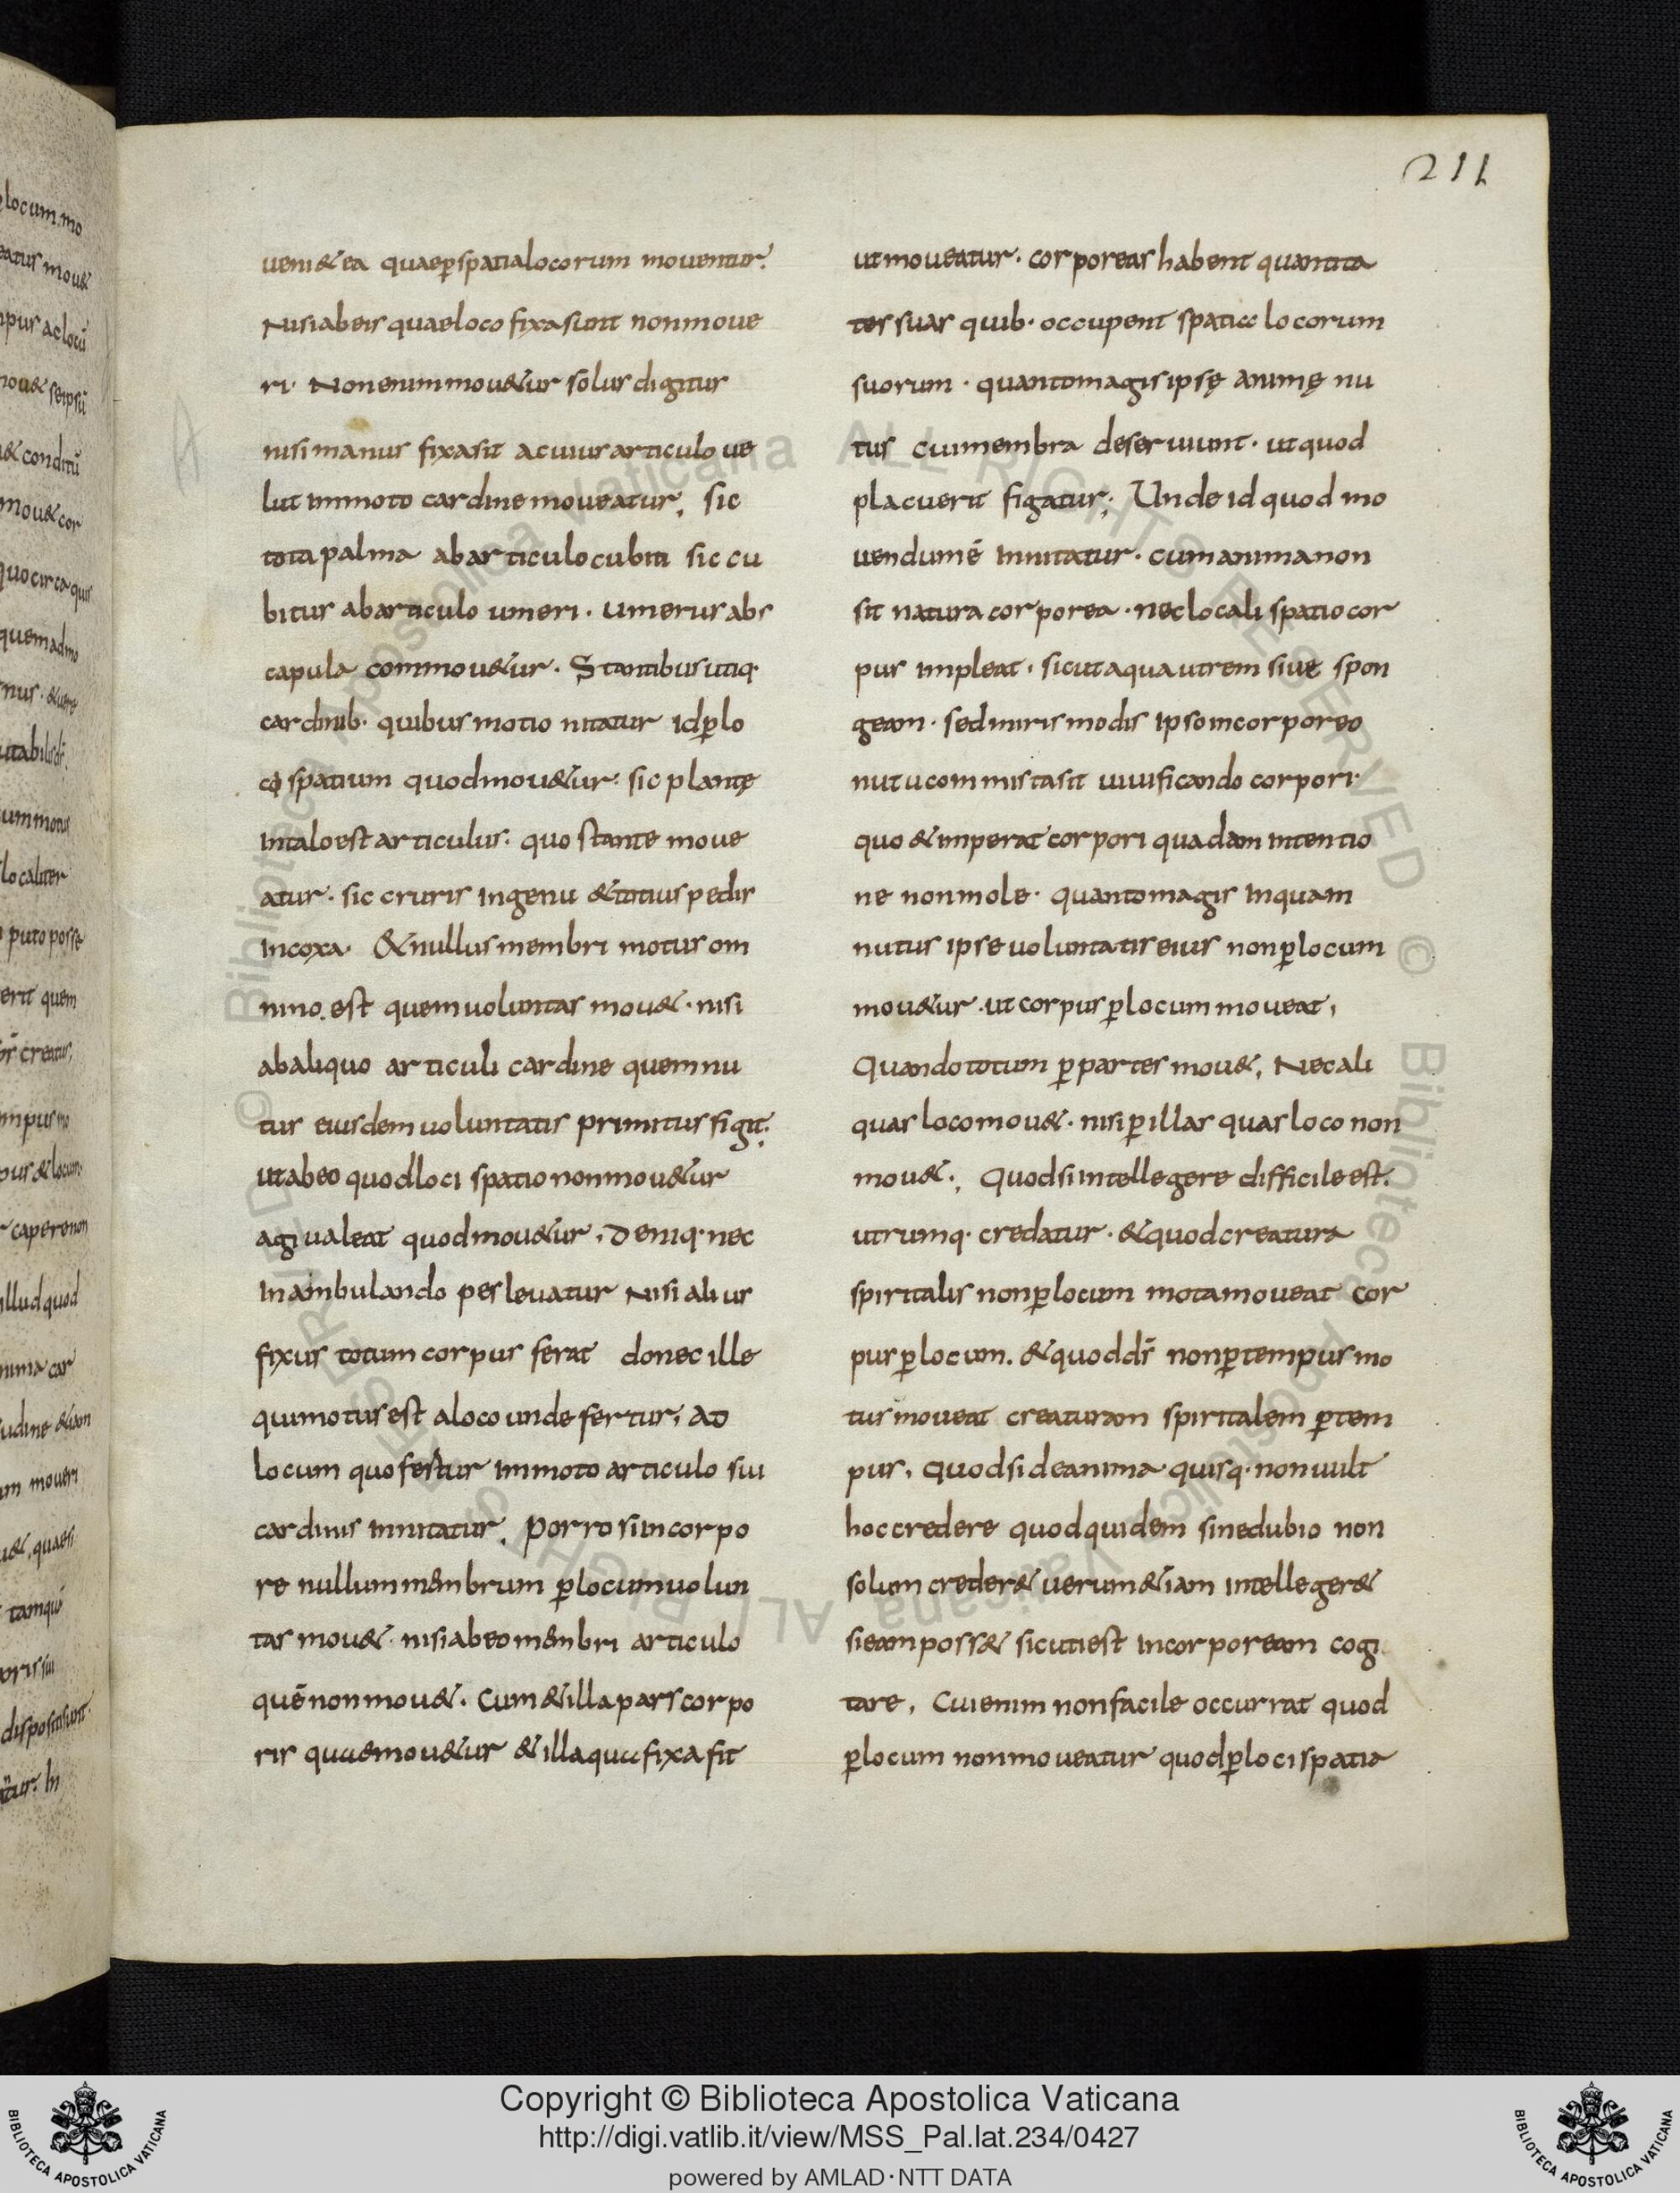 211
ueni& ea quaeꝑspatialocorum mouentur.
Nisiabeis quaeloco fixasunt nonmoue
ri· Nonenimmou&ur solus digitus
nisi manus fixasit acuius articulo ue
lut immoto cardine moueatur, sic
tota palma ab articulo cubiti sic cu
bitus ab articulo umeri · umerus abs
capula commou&ur · Stantibus utiq·
cardinib· quibus motio nitatur id ꝑ lo
ci spatium quod mou&ur· sic plantę
intalo est articulus· quo stante moue
atur · sic cruris ingenu &totius pedis
incoxa· &nullus membri motus om
nino est quem uoluntas mou& · nisi
abaliquo articuli cardine quem nu
tus eiusdem uoluntatis primitus figit;
utabeo quod loci spatio nonmou&ur
agi ualeat quod mou&ur, Deniq· nec
inambulando pes leuatur Nisi alius
fixus totum corpus ferat donec ille
quimotus est aloco unde fertur, ad
locum quo fertur immoto articulo sui
cardinis innitatur, Porro si in corpo
re nullum membrum ꝑ locum uolun
tas mou& · nisi abeo membri articulo
quē non mou& · Cum &illa pars corpo
ris quae mou&ur &illa quae fixa fit
ut moueatur · corporeas habent quantita
tes suas quib· occupent spatia locorum
suorum · quantomagis ipsę animę nu
tus cui membra deseruiunt · ut quod
placuerit figatur; Unde id quod mo
uendumē innitatur · cum anima non
sit natura corporea · nec locali spatio cor
pus impleat · sicut aqua utrem siue spon
geam · sed miris modis ipso incorporeo
nutu commistasit uiuificando corpori·
quo & imperat corpori quadam intentio
ne nonmole· quantomagis inquam
nutus ipse uoluntatis eius non ꝑ locum
mou&ur · ut corpus ꝑ locum moueat,
Quando totum ꝑ partes mou&, Nec ali
quas loco mou& · nisi ꝑ illas quas loco non
mou&·, Quod si intellegere difficile est·
utrumq· credatur · &quod creatura
spiritalis non ꝑ locum mota moueat cor
pus ꝑ locum. &quod dī non ꝑ tempus mo
tus moueat creaturam spiritalem ꝑ tem
pus, Quod si de anima quisq· non uult
hoc credere quod quidem sine dubio non
solum creder& uerum &iam intelleger&
si eam poss& sicuti est incorpoream cogi
tare, Cui enim non facile occurrat quod
ꝑ locum non moueatur quod ꝑ loci spatia
Copyright © Biblioteca Apostolica Vaticana
http://digi.vatlib.it/view/MSS_Pal.lat.234/0427
powered by AMLAD·NTT DATA
BIBLIOTECA APOSTOLICA VATICANA
BIBLIOTECA APOSTOLICA VATICANA